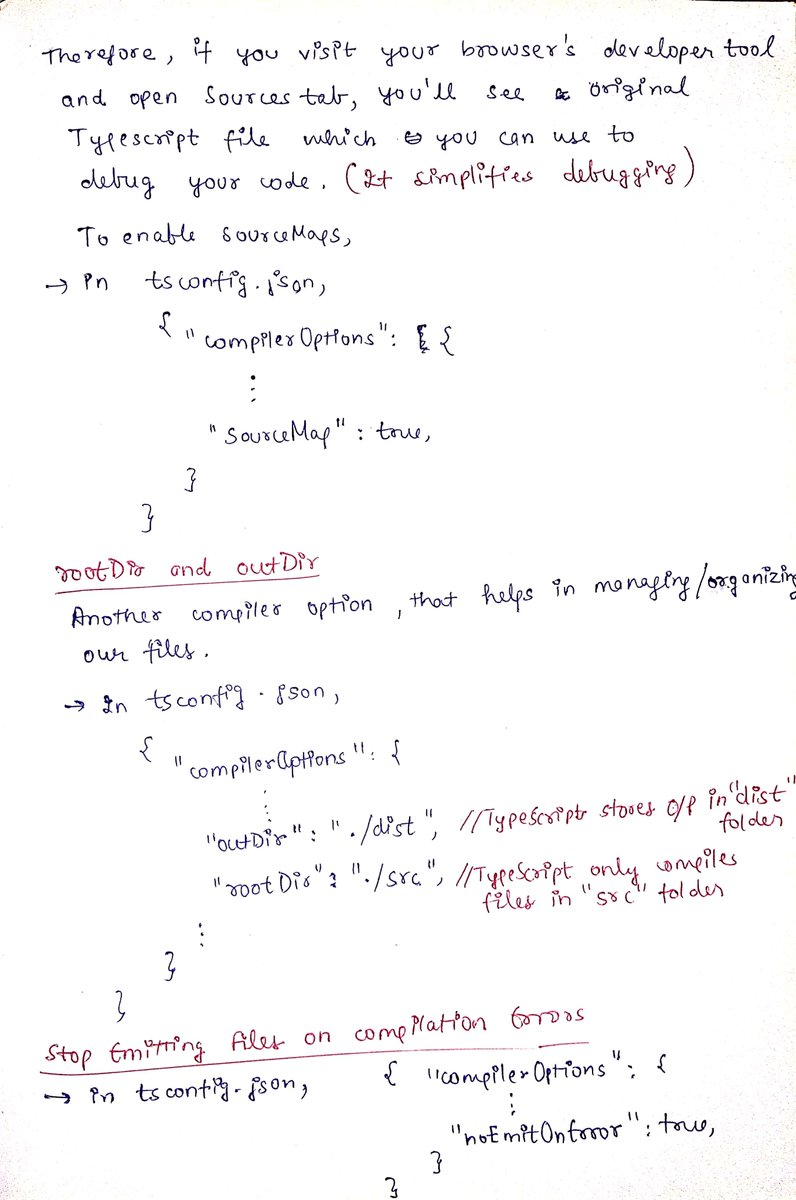 Therefore, if you visit your browser's developer tool
and open Sources tab, you'll see original
Typescript file which you can use to
debug your code. (It simplifies debugging)
To enable sourceMaps,
→ in tsconfig.json,
{ "compilerOptions": {
⋮
"sourceMap" : true,
}
}
rootDir and outDir
Another compiler option, that helps in managing/organizing
our files.
→ In tsconfig.json,
{ "compilerOptions": {
⋮
"outDir": "./dist", //TypeScript stores o/p in "dist"
folder
"rootDir": "./src", //TypeScript only compiles
files in "src" folder
⋮
}
}
Stop Emitting files on compilation Errors
→ in tsconfig.json, { "compilerOptions": {
⋮
"noEmitOnError": true,
}
}